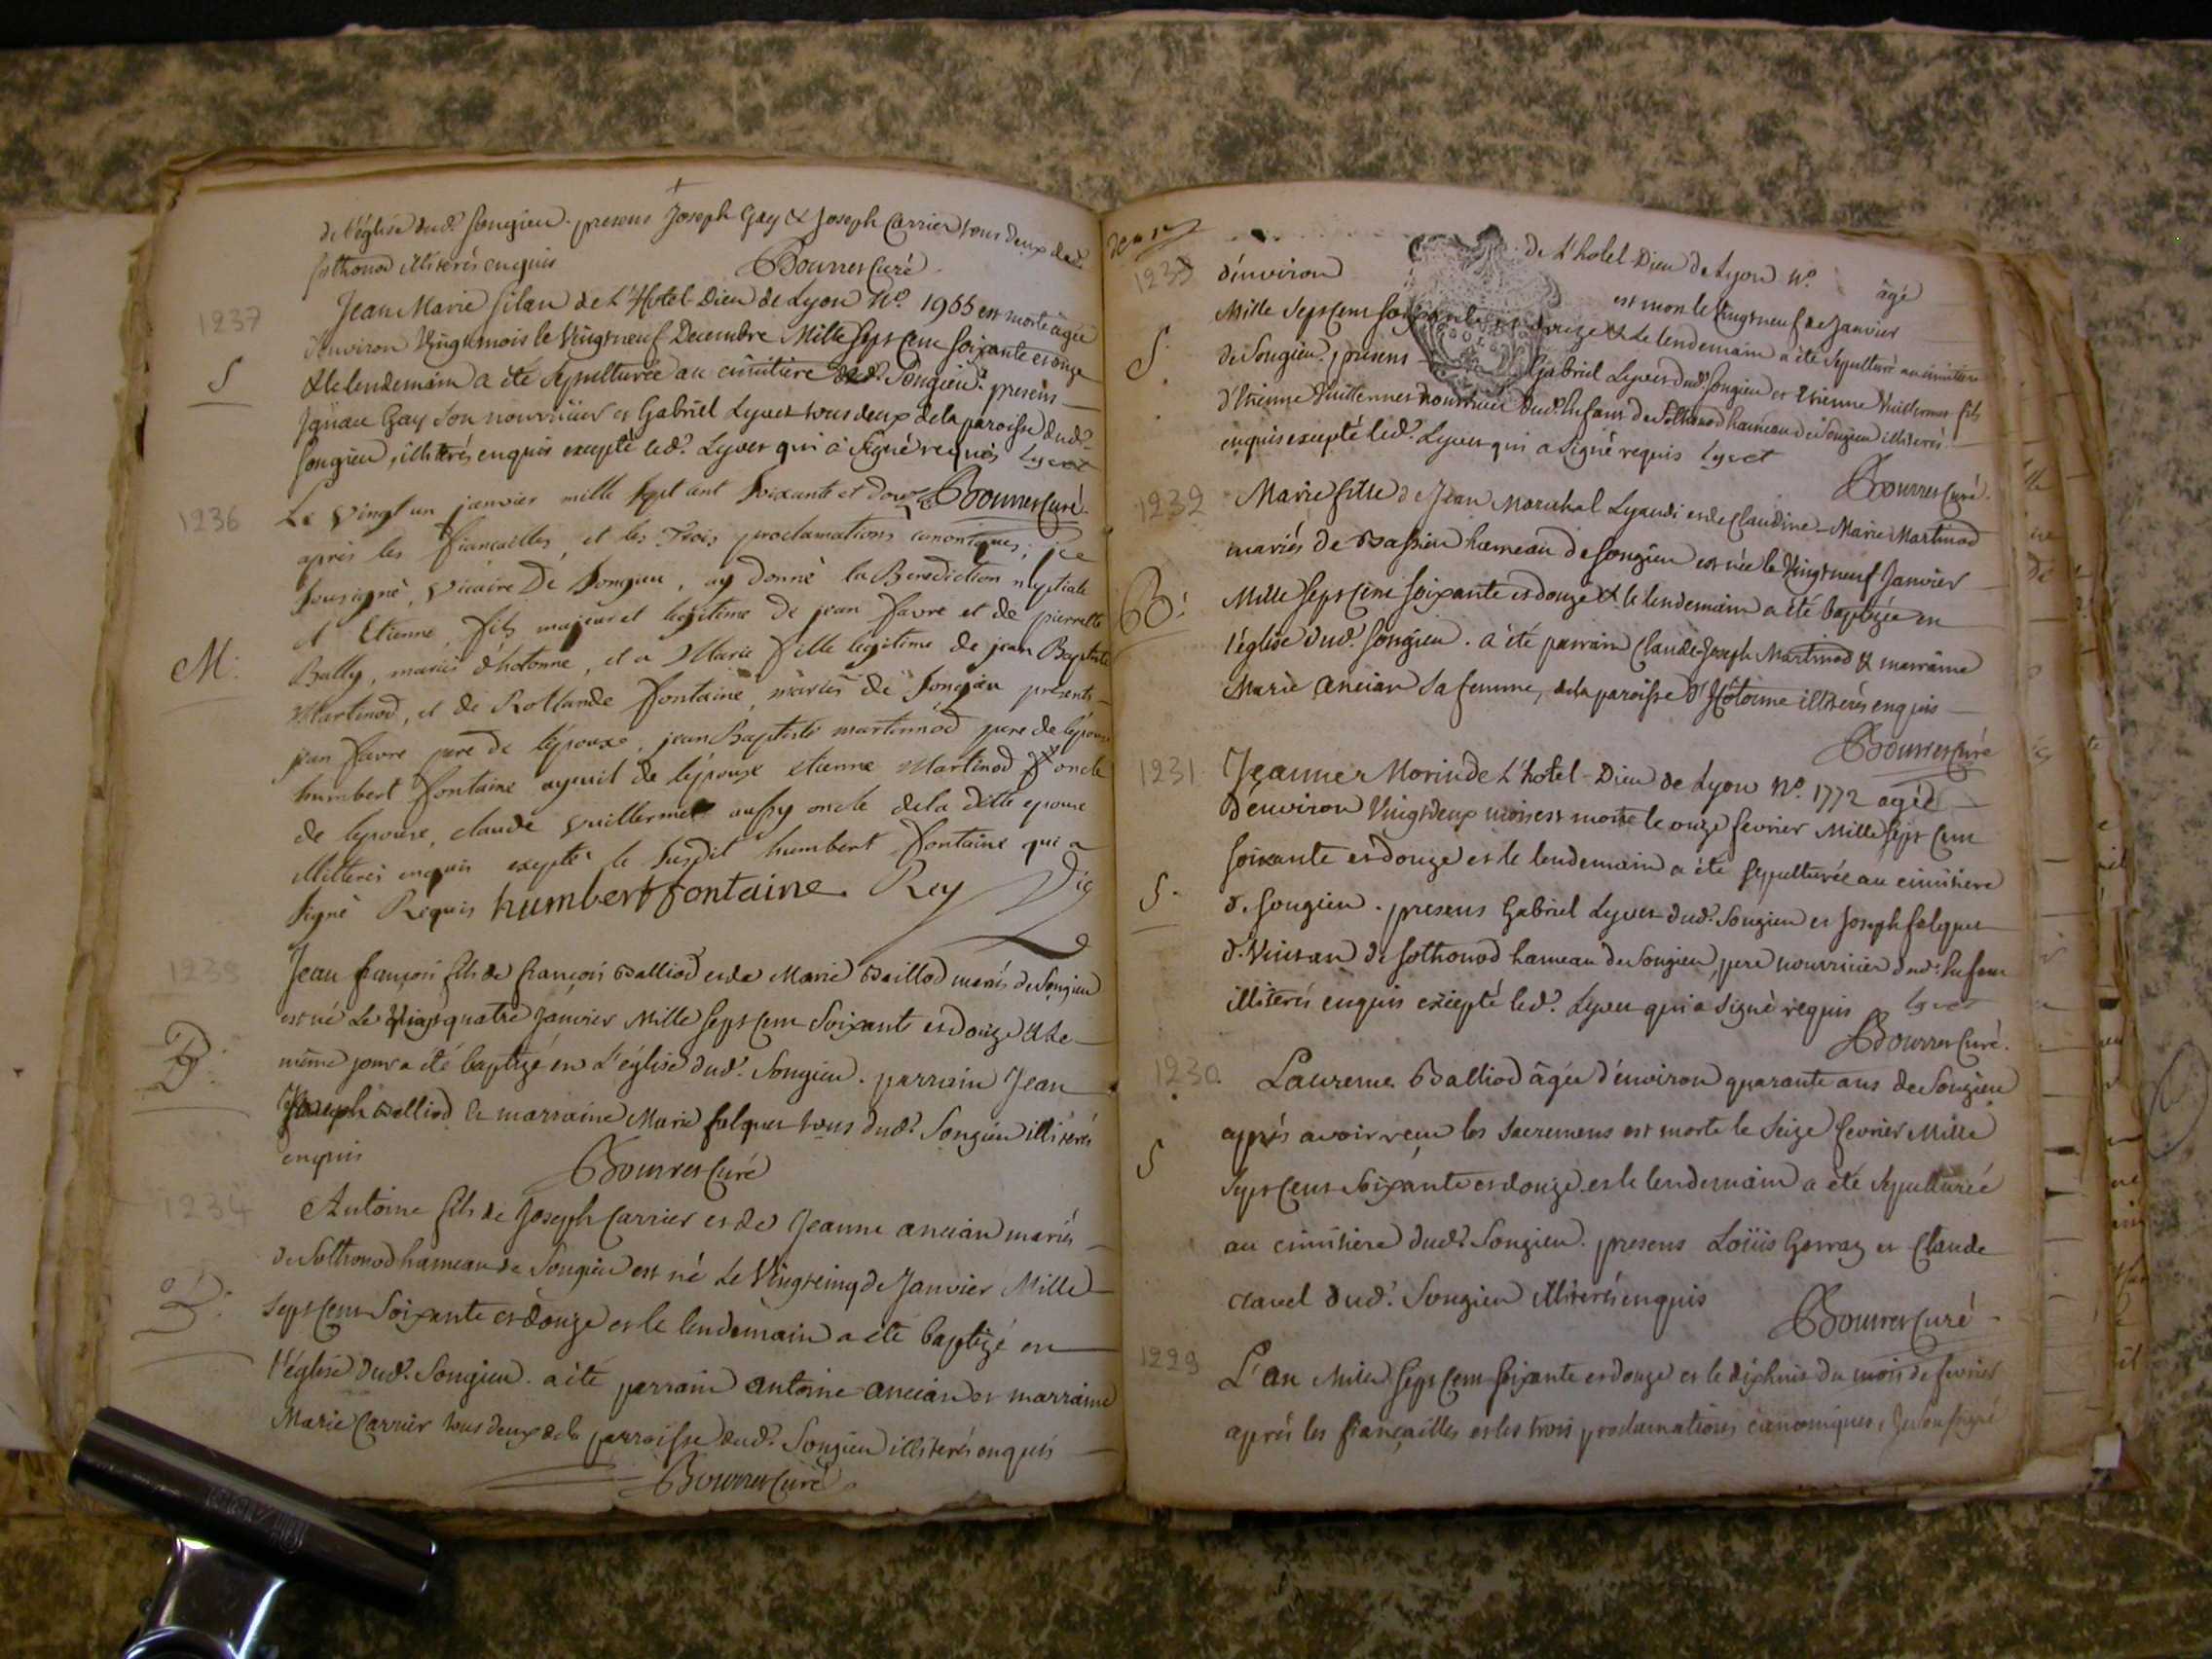 de l'église dud.t Songieu. presens Joseph Gay & Joseph Carrier tous deux de
Sothonod illiterés enquis Bourret Curé.
1237
Jean Marie filan de L'Hotel-Dieu de Lyon N.o 1955 est morte agée
d'environ Vingt mois le Vingt neuf Decembre Mille Sept Cent soixante et onze
S
& le lendemain a été Sepulturée au cimitiere dud.t Songieu. presens
Gay son nourricier et Gabriel Lyvet tous deux de la paroisse dud.t
Songieu, illiterés enquis excepté led.t Lyvet qui a signé requis Lyvet
Bourret Curé.
1236
Le vingt un janvier mille sept cent soixante et douze
apres les fiancailles, et les trois proclamations canoniques, je
soussigné, vicaire de Songieu, ay donné la Benediction nuptiale
M:
a Etienne, fils majeur et legitime de jean favre et de pierrette
Bally, mariés d'hotonne, et a Marie fille legitime de jean Baptiste
Martinod, et de Rollande fontaine, mariés de Songieu presents
jean favre pere de lépoux, jean Baptiste martinod pere de lépouse
humbert fontaine ayeuil de lépouse etienne Martinod oncle
de lepouse, claude vuillermet aussy oncle de la ditte epouse
illiterés enquis excepté le susdit humbert fontaine qui a
signé Requis humbert fontaine Rey Vic
123
Jean françois fils de françois Balliod et de Marie Baillod mariés de Songieu
est né Le Vingt quatre Janvier Mille Sept Cent Soixante et douze & le
B:
même jour a été baptizé en L'église dud.t Songieu. parrain Jean
Joseph Balliod & marraine Marie falquet tous dud.t Songieu illiterés
enquis Bourret Curé
1234
Antoine fils de Joseph Carrier et de Jeanne ancian mariés
de Sothonod hameau de Songieu est né Le Vingt cinq de Janvier Mille
B:
Sept Cent Soixante et douze et le lendemain a été baptizé en
l'église dud.t Songieu. a été parrain antoine ancian et marraine
Marie Carrier tous deux de la parroisse dud.t Songieu illiterés enquis
Bourret Curé.
1233
de L'hotel-Dieu de Lyon N.o âgé
d'environ est mort le Vingt neuf de Janvier
Mille Sept Cent soixante et douze & le lendemain a été Sepulturé au cimitiere
S.
de Songieu. presens Gabriel Lyvet dud.t Songieu et Etienne Vuillermet fils
d'Etienne Vuillermet nourricier dud.t Enfant de Sothonod hameau de Songieu illiterés
enquis excepté led.t Lyvet qui a signé requis Lyvet
Bourret Curé.
1232
Marie fille de Jean Marichal Lyaudi et de Claudine-Marie Martinod
mariés de Bassieu hameau de Songieu est née le Vingt neuf Janvier
B:
Mille Sept Cent soixante et douze & le lendemain a été baptizée en
l'église dud.t Songieu. a été parrain Claude-Joseph Martinod & marraine
Marie Ancian sa femme, de la paroisse d'Hôtonne illiterés enquis
Bourret Curé
1231
Morin de L'hotel-Dieu de Lyon N.o 1772 agée
d'environ Vingt deux mois est morte le onze fevrier Mille Sept Cent
soixante et douze et le lendemain a été sepulturée au cimitiere
S.
de Songieu. presens Gabriel Lyvet dud.t Songieu et Joseph falquet
de Sothonod hameau de Songieu, pere nourricier dud.t Enfant
illiterés enquis excepté led.t Lyvet qui a signé requis Lyvet
Bourret Curé.
1230.
Laurence Balliod âgée d'environ quarante ans de Songieu
S
après avoir reçu les Sacremens est morte le Seize fevrier Mille
Sept Cent Soixante et douze et le lendemain a été Sepulturée
au cimitiere dud.t Songieu. presens Loüis Gerraz et Claude
clavel dud.t Songieu illiterés enquis
Bourret Curé
1229
L'an Mille Sept Cent soixante et douze et le dixhuit du mois de fevrier
après les fiançailles et les trois proclamations canoniques, Je Soussigné